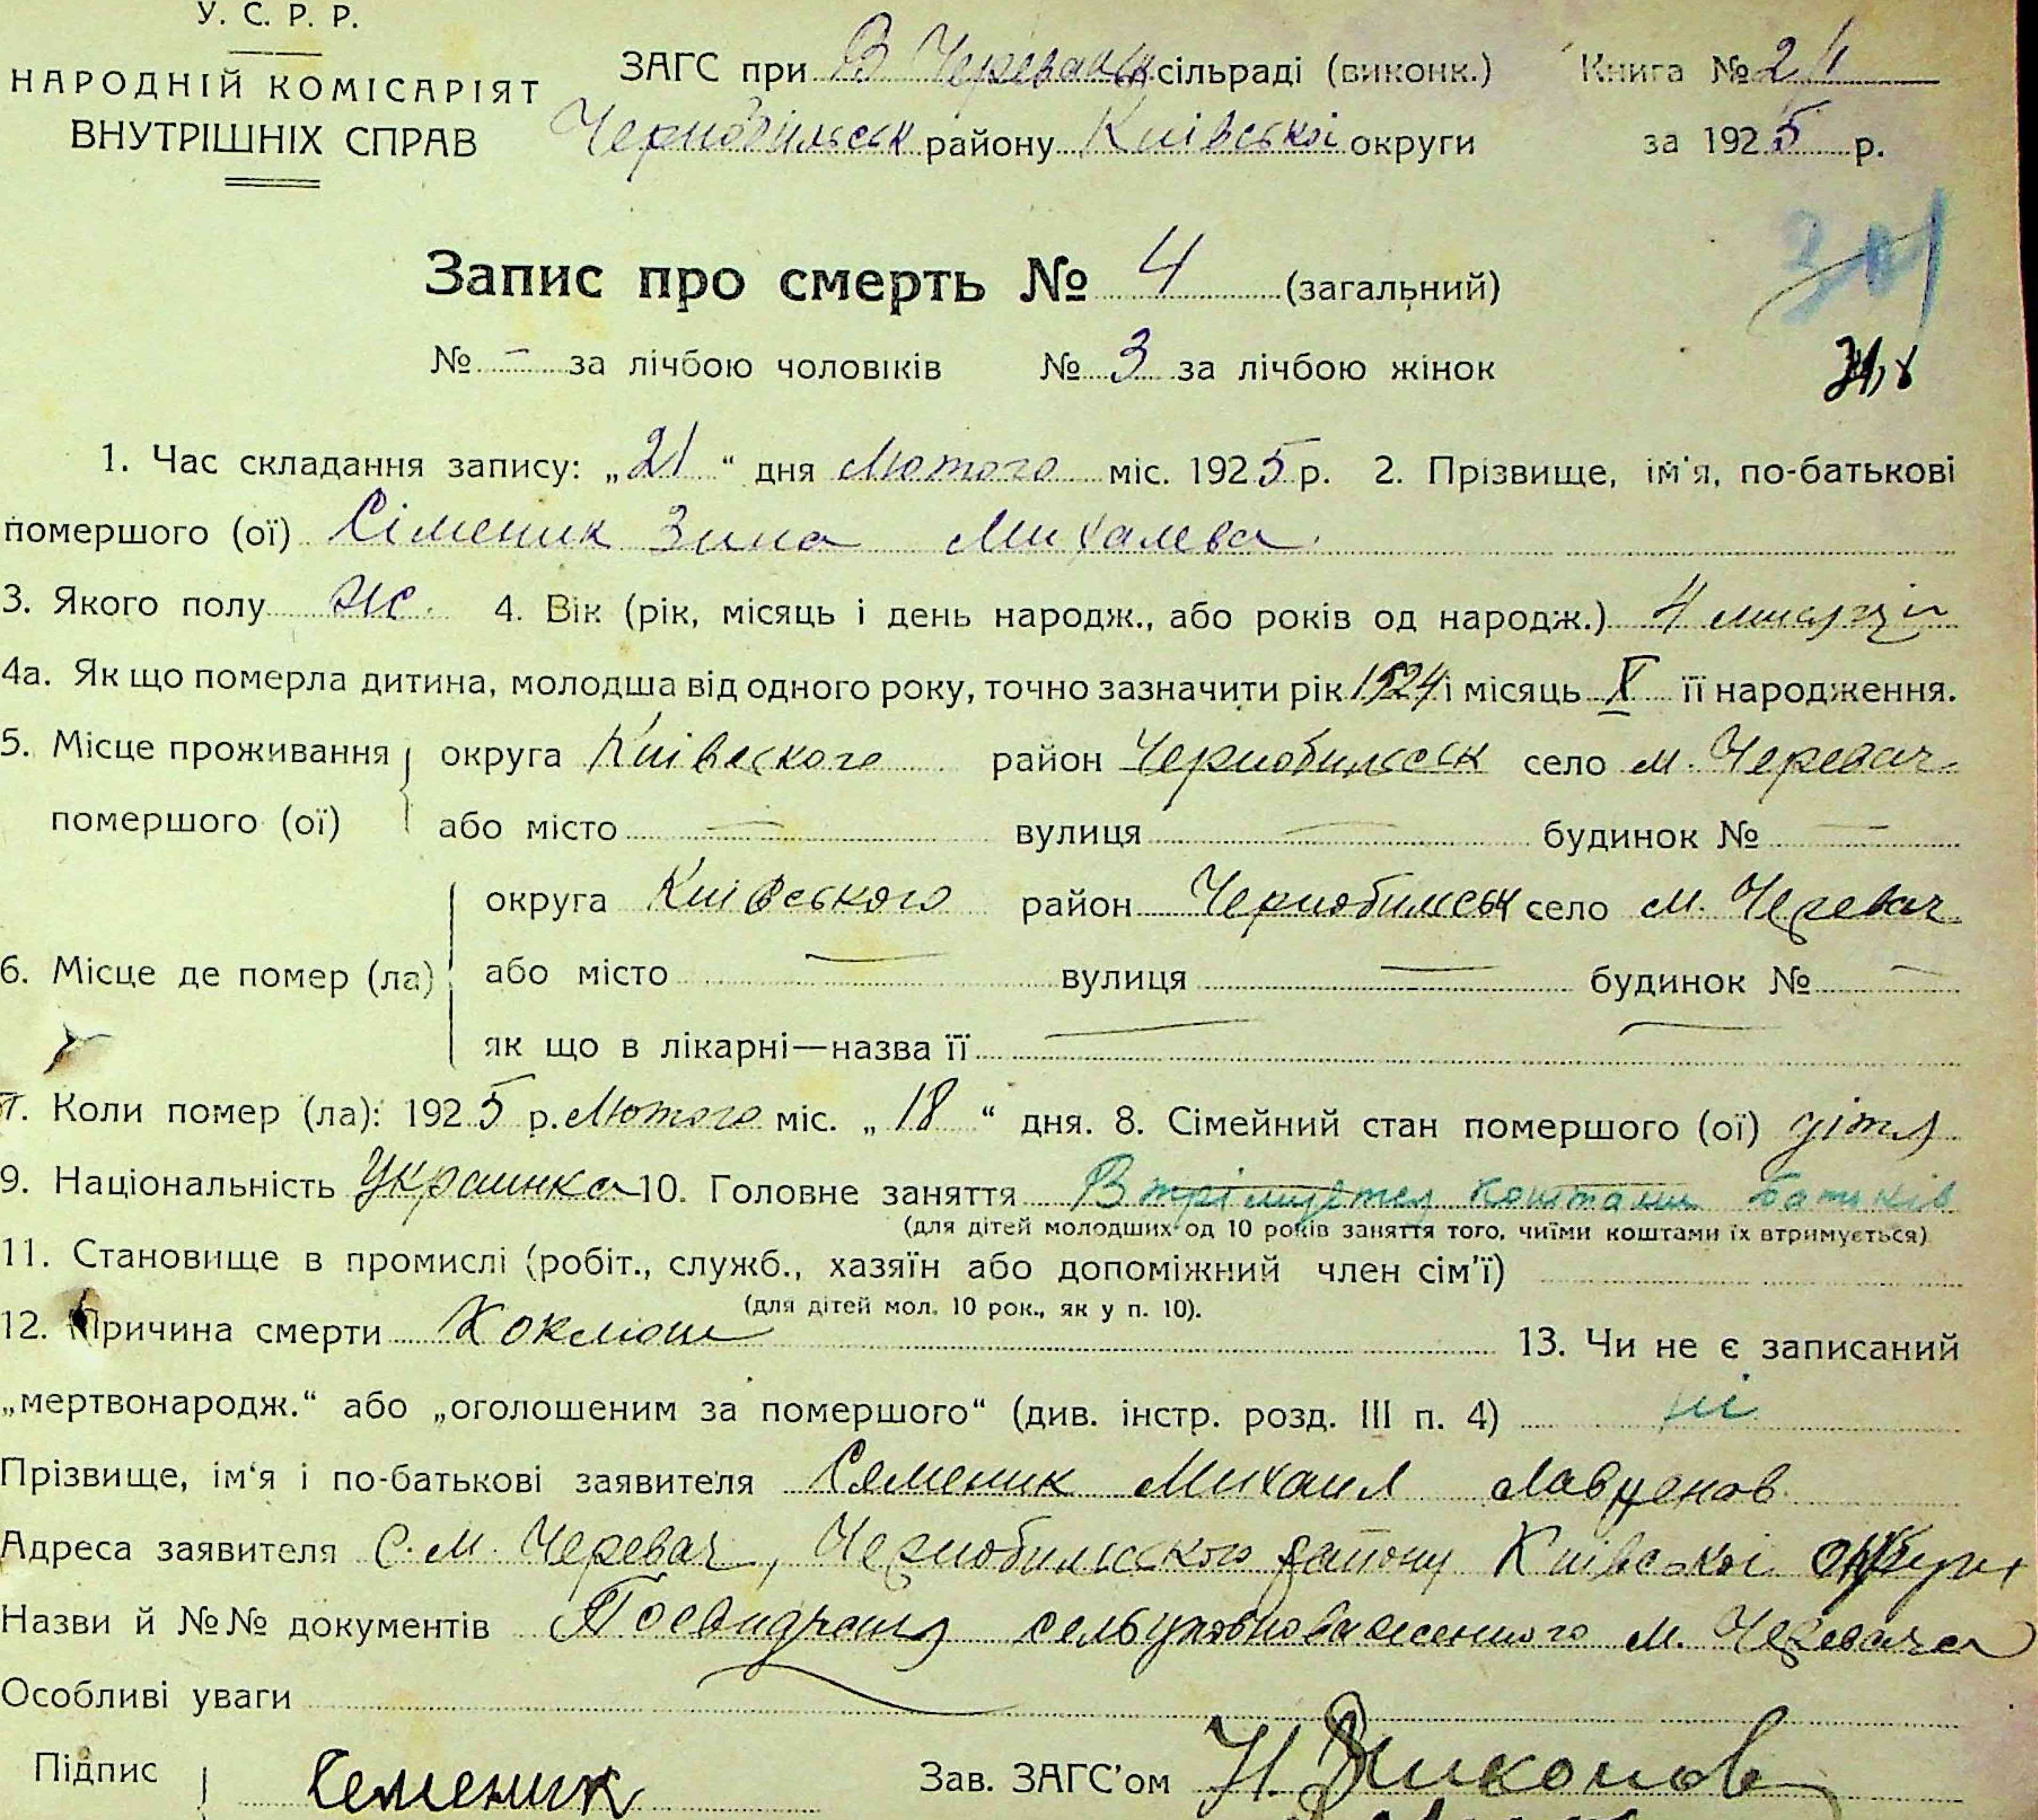 У. С. Р. Р.
НАРОДНІЙ КОМІСАРІЯТ
ВНУТРІШНІХ СПРАВ
ЗАГС при В Череваньк сільраді (виконк.)
Чернобильськ району Київської округи
Книга №
за 1925 р.
Запис про смерть № 4 (загальний)
№ – за лічбою чоловіків № 3 за лічбою жінок
1. Час складання запису: „21“ дня Лютого міс. 1925 р. 2. Прізвище, ім'я, по-батькові
помершого (ої) Сіменик Зина Михалева
3. Якого полу ж. 4. Вік (рік, місяць і день народж., або років од народж.) 4
4а. Як що померла дитина, молодша від одного року, точно зазначити рік 1924 і місяць X її народження.
5. Місце проживання помершого (ої) округа Київского район Чернобильськ село м. Черевач
або місто — вулиця — будинок № —
6. Місце де помер (ла) округа Київського район Чернобильськ село м. Черевач
або місто — вулиця — будинок № —
як що в лікарні—назва її —
7. Коли помер (ла): 1925 р. Лютого міс. „18“ дня. 8. Сімейний стан помершого (ої) дітя
9. Національність Украинка 10. Головне заняття Втрімуетея коштами батьків
(для дітей молодших од 10 років заняття того, чиїми коштами їх втримується)
11. Становище в промислі (робіт., служб., хазяїн або допоміжний член сім'ї)
(для дітей мол. 10 рок., як у п. 10).
12. Причина смерти Коклюш 13. Чи не є записаний
„мертвонародж.“ або „оголошеним за помершого“ (див. інстр. розд. III п. 4) ні
Прізвище, ім'я і по-батькові заявителя Семеник Михаил
Адреса заявителя С. М. Черевач, Чернобильского району Київської округи
Назви й №№ документів м. Черевача
Особливі уваги
Підпис Семеник Зав. ЗАГС'ом